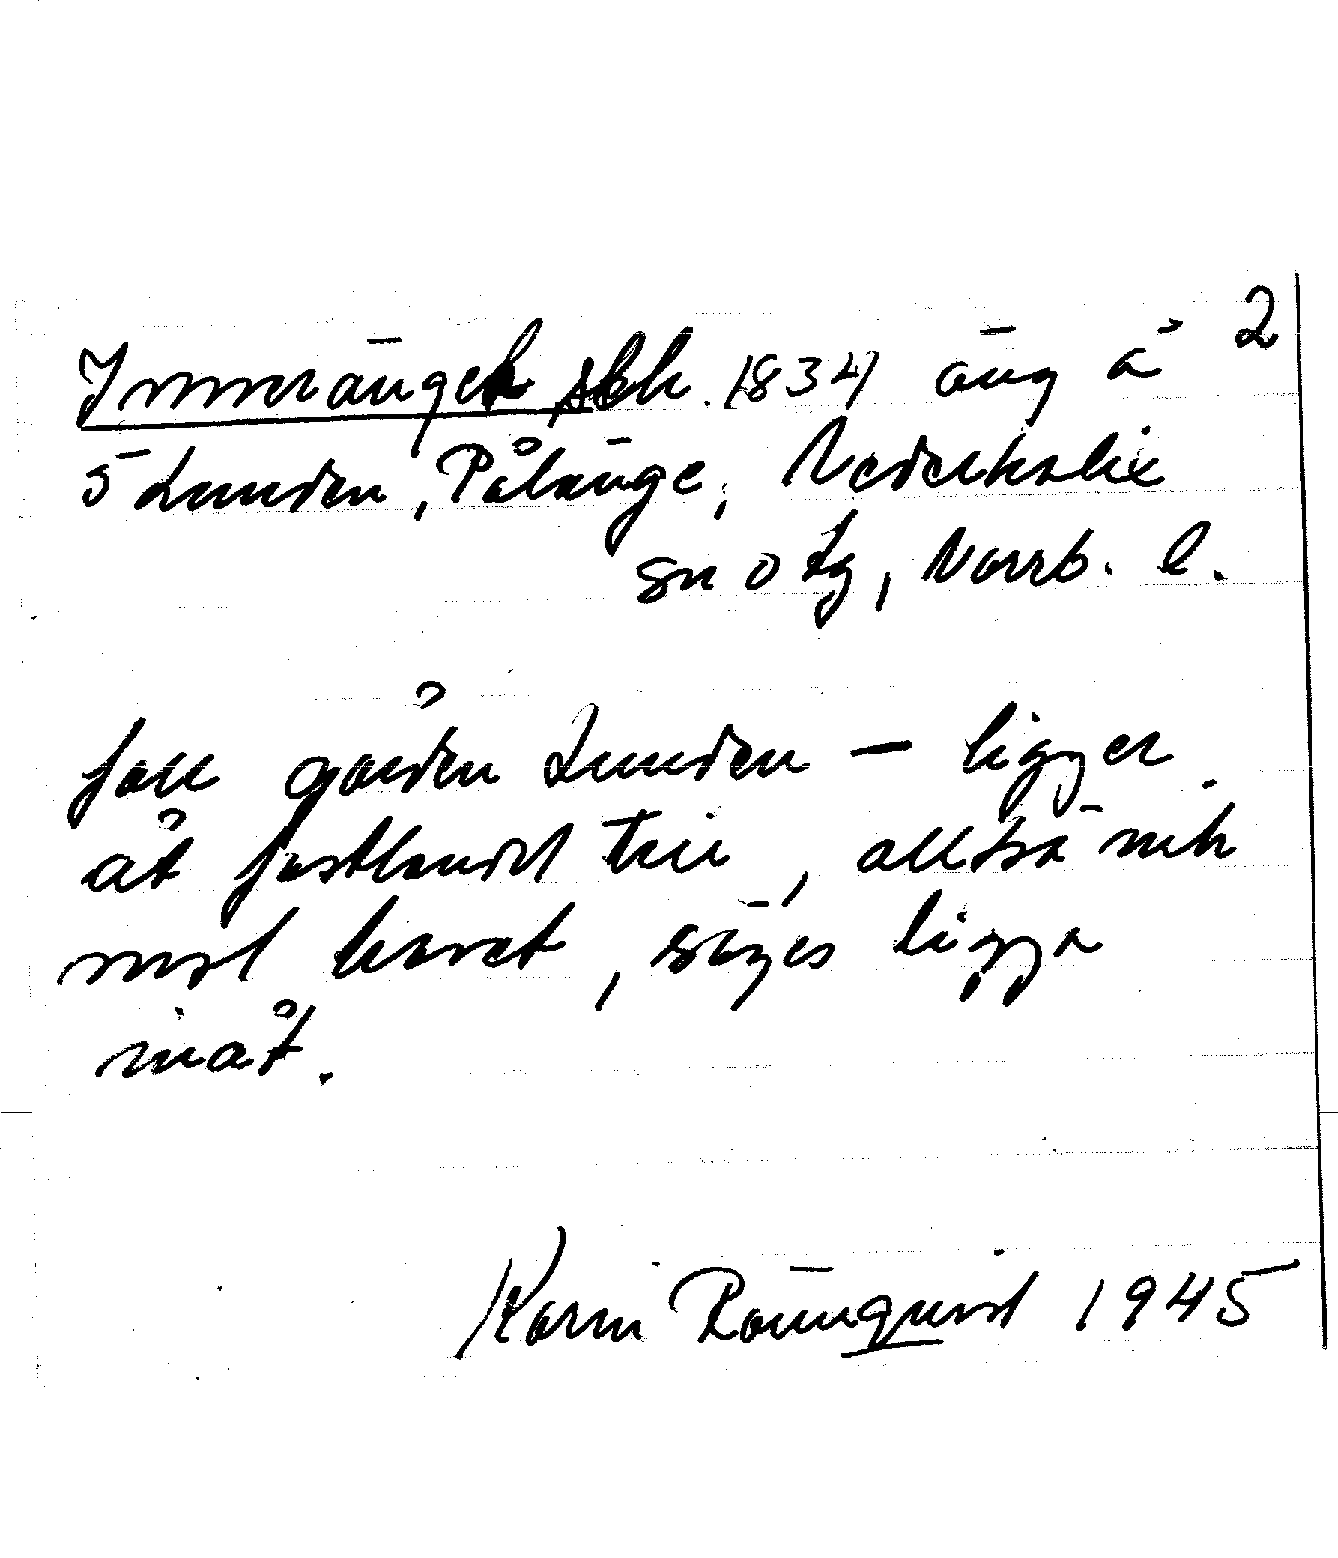 2
Inneränget sbh. 1834 äng å
5 Lunden, Pålänge, Nederkalix
sn o tg, Norrb. l.
fall gården Lunden – ligger
åt fastlandet till, alltså inåt
mot havet, säges ligga
inåt.
Karin Rönnqvist 1945